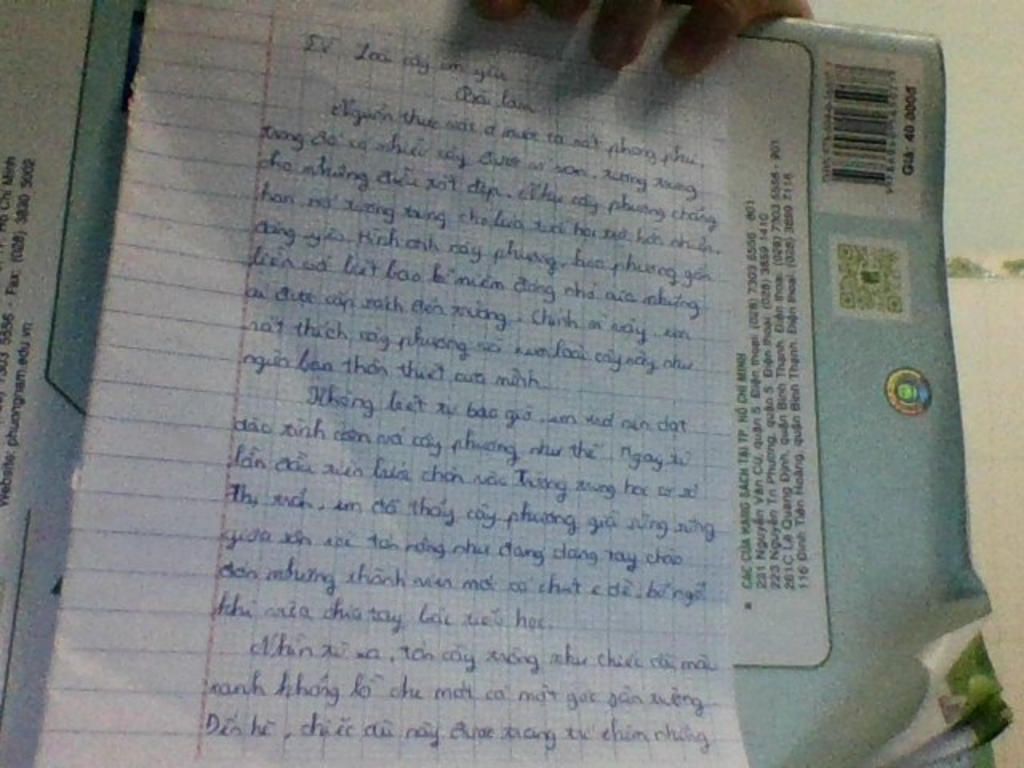 Loài cây em yêu
Bài làm
Nguồn thực vật ở nước ta rất phong phú,
trong đó có nhiều cây được ví von, tượng trưng
cho những điều tốt đẹp. Như cây phượng chẳng
hạn nó tượng trưng cho lứa tuổi học trò hồn nhiên,
đáng yêu. Hình ảnh cây phượng, hoa phượng gắn
liền với biết bao kỉ niệm đáng nhớ của những
ai được cắp sách đến trường. Chính vì vậy, em
rất thích cây phượng và xem loài cây này như
người bạn thân thiết của mình.
Không biết tự bao giờ, em
cây phượng như thế. Ngay từ
lần đầu tiên bước chân vào Trường trung học cơ sở
Thị trấn, em đã thấy cây phượng già sừng sững
giữa sân với tán rộng như đang dang tay chào
đón những thành viên mới có chút e dè, bỡ ngỡ
khi vừa chia tay bậc tiểu học.
Nhìn từ xa, tán cây trông như chiếc dù màu
xanh khổng lồ che mát cả một góc sân trường.
Đến hè, chiếc dù này được trang trí thêm những
CÁC CỬA HÀNG SÁCH TẠI TP. HỒ CHÍ MINH
231 Nguyễn Văn Cừ, quận 5 Điện thoại: (028) 7303 5556 - 801
223 Nguyễn Tri Phương, quận 5 Điện thoại: (028) 3859 1410
261C Lê Quang Định, quận Bình Thạnh. Điện thoại: (028) 7303 5556 - 901
116 Đinh Tiên Hoàng, quận Bình Thạnh. Điện thoại: (028) 3889 7116
Giá: 40.000đ
TP. Hồ Chí Minh
7303 5556 - Fax: (028) 3830 5002
Website: phuongnam.edu.vn